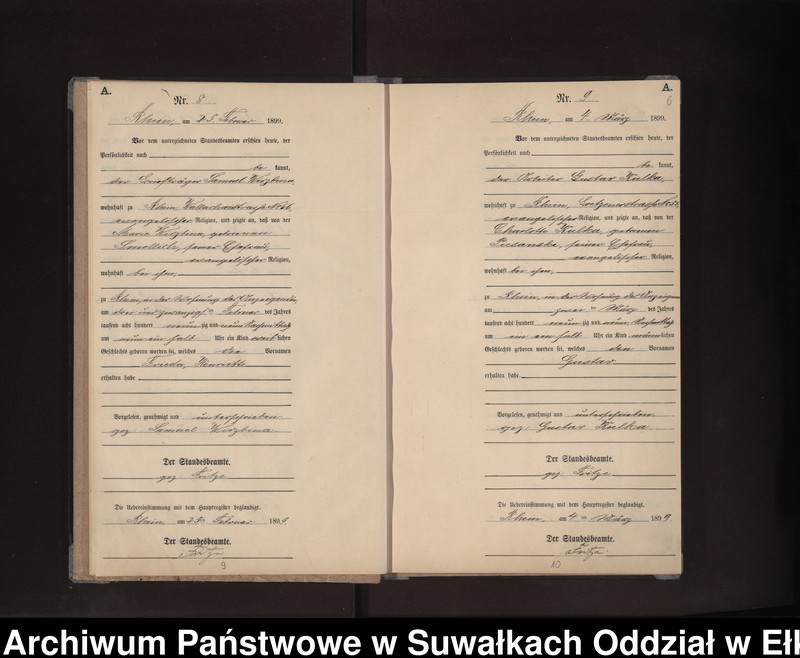 A.
Nr. 8
Rhein, am 25 Februar 1899.
Vor dem unterzeichneten Standesbeamten erschien heute, der
Persönlichkeit nach
be kannt,
der Samuel Wirzbina,
wohnhaft zu Rhein
evangelischer Religion, und zeigte an, daß von der
Marie Wirzbina, geborenen
seiner Ehefrau,
evangelischer Religion,
wohnhaft bei ihm,
zu Rhein, in der Wohnung des Anzeigenden,
am drei und zwanzigsten Februar des Jahres
tausend acht hundert neunzig und neun Nachmittags
um neun ein halb Uhr ein Kind weiblichen
Geschlechts geboren worden sei, welches die Vornamen
Frieda, Henriette
erhalten habe
Vorgelesen, genehmigt und unterschrieben
gez. Samuel Wirzbina
Der Standesbeamte.
gez. Fritze
Die Uebereinstimmung mit dem Hauptregister beglaubigt.
Rhein am 25 Februar 1899.
Der Standesbeamte.
Fritze
9
A.
6
Nr. 9
Rhein, am 4. März 1899.
Vor dem unterzeichneten Standesbeamten erschien heute, der
Persönlichkeit nach
be kannt,
der Arbeiter Gustav Kulka,
wohnhaft zu Rhein, Loetzenerstrasse
evangelischer Religion, und zeigte an, daß von der
Charlotte Kulka, geborenen
seiner Ehefrau,
evangelischer Religion,
wohnhaft bei ihm,
zu Rhein, in der Wohnung des Anzeigenden
am zweiten März des Jahres
tausend acht hundert neunzig und neun Nachmittags
um ein halb Uhr ein Kind männlichen
Geschlechts geboren worden sei, welches den Vornamen
Gustav
erhalten habe.
Vorgelesen, genehmigt und unterschrieben
gez. Gustav Kulka.
Der Standesbeamte.
gez. Fritze.
Die Uebereinstimmung mit dem Hauptregister beglaubigt.
Rhein, am 4. März 1899
Der Standesbeamte.
Fritze.
10
Archiwum Państwowe w Suwałkach Oddział w Ełk